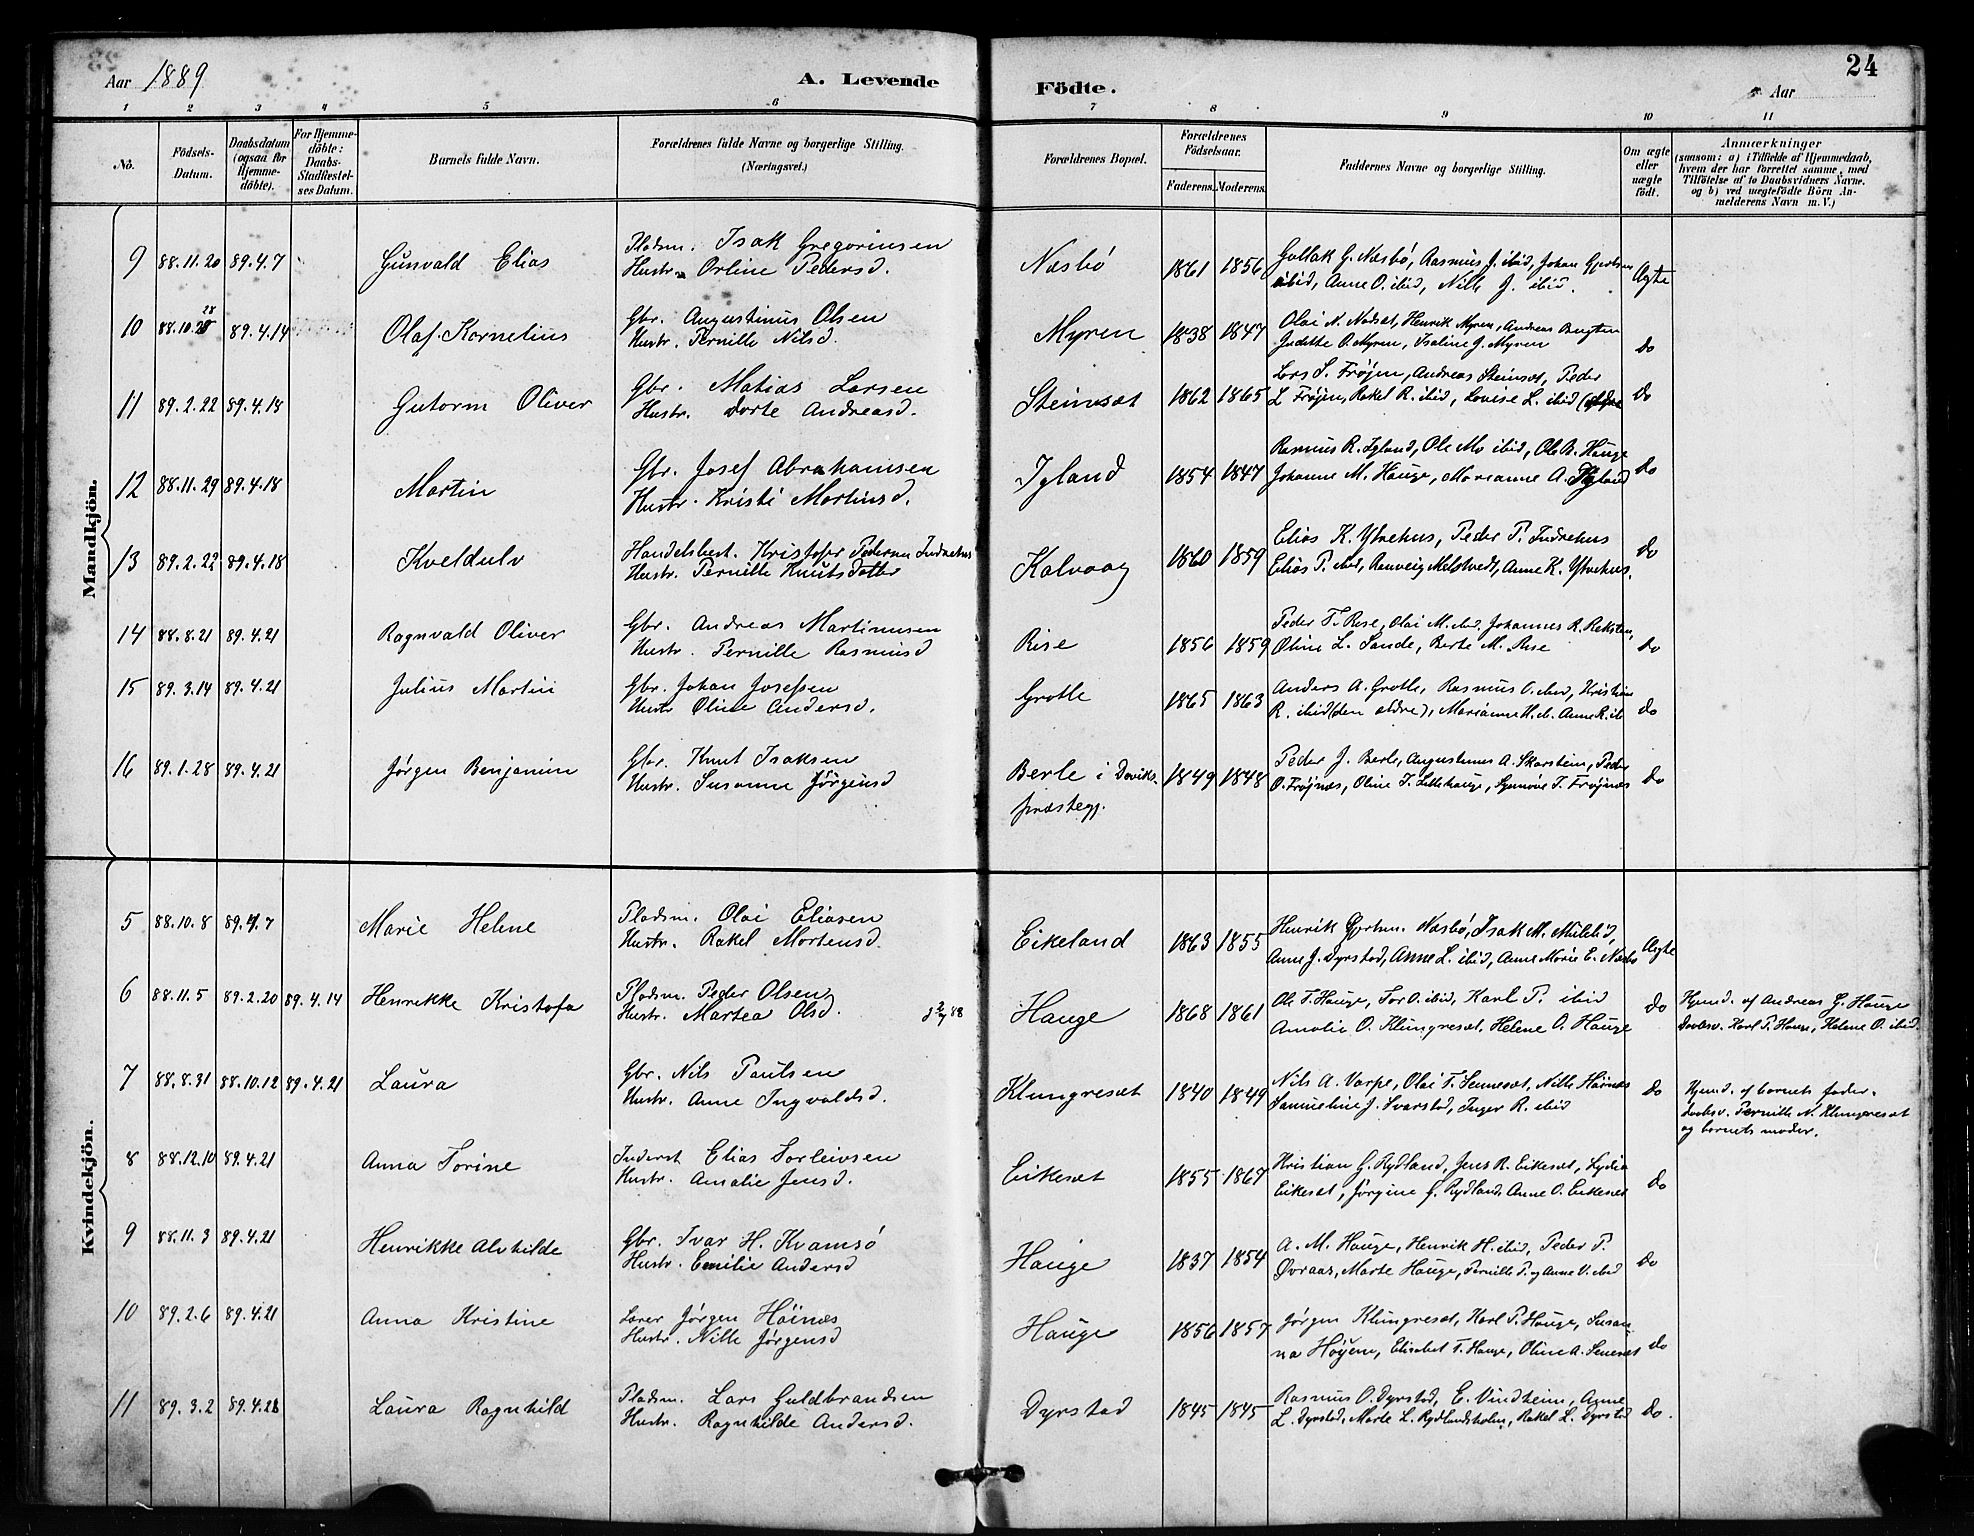 Aar 1889
A. Levende
Födte.
24
Aar
1 2 3 4 5 6 7 8 9 10 11
No.
Födsels-Datum.
Daabsdatum (ogsaa for Hjemme-döbte).
For Hjemme-döbte: Daabs-Stadfestel-ses Datum.
Barnets fulde Navn.
Forældrenes fulde Navne og borgerlige Stilling. (Næringsvei.)
Forældrenes Bopæl.
Forældrenes Födselsaar.
Faderens. Moderens.
Faddernes Navne og borgerlige Stilling.
Om ægte eller uægte födt.
Anmærkninger
(saasom: a) i Tilfælde af Hjemmedaab, hvem der har forrettet samme, med Tilföielse af to Daabsvidners Navne, og b) ved uægtefödte Börn An-melderens Navn m. V.)
Mandkjön.
9 88.11.20 89.4.7 Gunvald Elias
Pladsm. Isak Gregoriusen
Hustr. Orline Pedersd.
Næsbö 1861 1856
Gullak G. Næsbö, Rasmus J. ibid, Johan
ibid, Anne O. ibid, Nille J. ibid.
Ægte
10 88.10.28 89.4.14 Olaf Kornelius
Gbr. Augustinus Olsen
Hustr. Pernille Nilsd.
Myren 1838 1847
Olai N. Nodset, Henrik Myren, Andreas
Judithe O. Myren, Isaline J. Myren
do
11 89.2.22 89.4.18 Gutorm Oliver
Gbr. Matias Larsen
Hustr. Dorte Andreasd.
Steinset 1862 1865
Lars S. Fröjen, Andreas Steinset, Peder
L Fröjen, Rakel R. ibid, Lovise L. ibid
do
12 88.11.29 89.4.18 Martin
Gbr. Josef Abrahamsen
Hustr. Kristi Martinsd.
Igland 1854 1847
Rasmus R. Igland, Ole Mo ibid, Ole B. Hauge
Johanne M. Hauge, Marianne A. Igland
do
13 89.2.22 89.4.18 Kveldulv
Handelsbest. Kristofer Pedersen Indrehus
Hustr. Pernille Knutsdatter
Kalvaag 1860 1859
Elias K. Ytrehus, Peder P. Indrehus
Elias P. ibid, Ranveig Melstvedt, Anne K. Ytrehus.
do
14 88.8.21 89.4.21 Ragnvald Oliver
Gbr. Andreas Martinusen
Hustr. Pernille Rasmusd
Rise 1856 1859
Peder T. Rise, Olai M. ibid, Johannes R. Reksten,
Oline L. Sande, Berte M. Rise
do
15 89.3.14 89.4.21 Julius Martin
Gbr. Johan Josefsen
Hustr Oline Andersd.
Grotle 1865 1863
Anders A. Grotle, Rasmus O. ibid, Kristian
R. ibid (den ældre), Marianne H. ib. Anne R. ib
do
16 89.1.28 89.4.21 Jörgen Benjamin
Gbr. Knut Isaksen
Hustr. Susanne Jörgensd
Berle i Daviks-
præstegj.
1849 1848
Peder J. Berle, Augustinus A. Skorstein, Peder
O. Fröjnæs, Oline T. Lillehauge, Synnöve T. Fröjnæs
do
Kvindekjön.
5 88.10.8 89.4.7 Marie Helene
Pladsm. Olai Eliasen
Hustr. Rakel Mortensd.
Eikeland 1863 1855
Henrik Gjertsen Næsbö, Isak M. ibid,
Anne J. Dyrstad, Anne L. ibid, Anne Marie E. Næsbö
Ægte
6 88.11.5 89.2.20 89.4.14 Henrikke Kristofa
Pladsm. Peder Olsen
Hustr. Martea Olsd.
Hauge 1868 1861
Ole T. Hauge, Tor O. ibid, Karl P. ibid
Amalie O. Klungreset, Helene O. Hauge
do
Hjmd. af Andreas G. Hauge
Daabsv. Karl P. Hauge, Helene O. ibid.
7 88.8.31 88.10.12 89.4.21 Laura
Gbr. Nils Paulsen
Hustr. Anne Ingvaldsd.
Klungreset 1840 1849
Nils A. Varpe, Olai T. Sennesæt, Nille Höinæs
Samueline J. Svarstad, Inger R. ibid
do
Hjmd. af barnets fader.
Daabsv. Pernille N. Klungreset
og barnets moder.
8 88.12.10 89.4.21 Anna Torine
Inderst Elias Torleivsen
Hustr. Amalie Jensd.
Eikeset 1855 1867
Kristian G. Rydland, Jens R. Eikeset, Lydia
Eikeset, Jörgine G. Rydland, Anne O. Eikeset
do
9 88.11.3 89.4.21 Henrikke Alvhilde
Gbr. Ivar H. Kvamsö
Hustr. Emilie Andersd
Hauge 1837 1854
A. M. Hauge, Henrik H. ibid, Peder P.
Övraas, Marte Hauge, Pernille P. og Anne V. ibid
do
10 89.2.6 89.4.21 Anna Kristine
Lærer Jörgen Höinæs
Hustr. Nille Jörgensd
Hauge 1856 1857
Jörgen Klungreset, Karl P. Hauge, Susan-
na Höyem, Elisabet T. Hauge, Oline A. Seneset
do
11 89.3.2 89.4.28 Laura Ragnhild
Pladsm. Lars Guldbrandsen
Hustr. Ragnhilde Andersd.
Dyrstad 1845 1845
Rasmus O. Dyrstad, E. Vindheim, Anne
L. Dyrstad, Marte L. Rydlandsholm, Rakel L. Dyrstad
do.